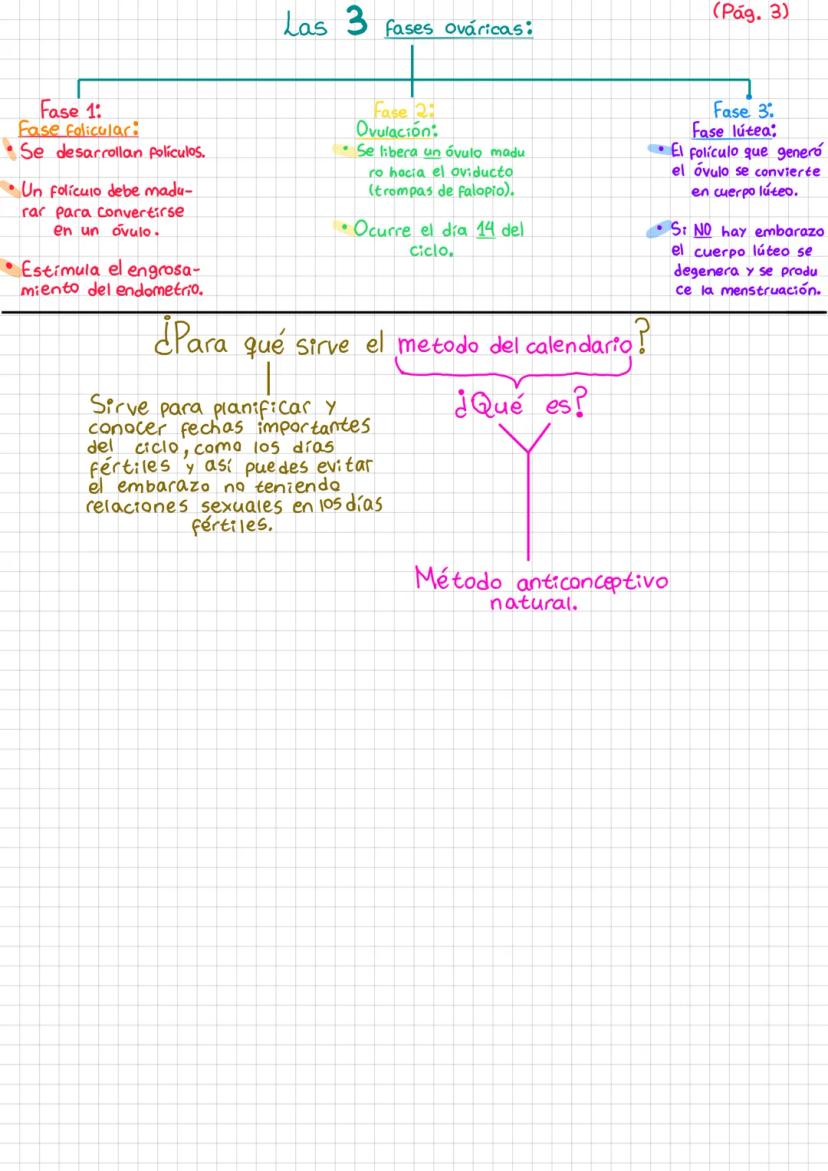 (Pág. 3)
Las 3 fases ováricas:
Fase 1:
Fase folicular:
• Se desarrollan folículos.
• Un folículo debe madu-
rar para convertirse
en un óvulo.
• Estimula el engrosa-
miento del endometrio.
Fase 2:
Ovulación:
• Se libera un óvulo madu
ro hacia el oviducto
(trompas de falopio).
• Ocurre el día 14 del
ciclo.
Fase 3:
Fase lútea:
• El folículo que generó
el óvulo se convierte
en cuerpo lúteo.
• Si NO hay embarazo
el cuerpo lúteo se
degenera y se produ
ce la menstruación.
¿Para qué sirve el metodo del calendario?
Sirve para planificar y
conocer fechas importantes
del ciclo, como los días
fértiles y así puedes evitar
el embarazo no teniendo
relaciones sexuales en los días
fértiles.
¿Qué es?
Método anticonceptivo
natural.